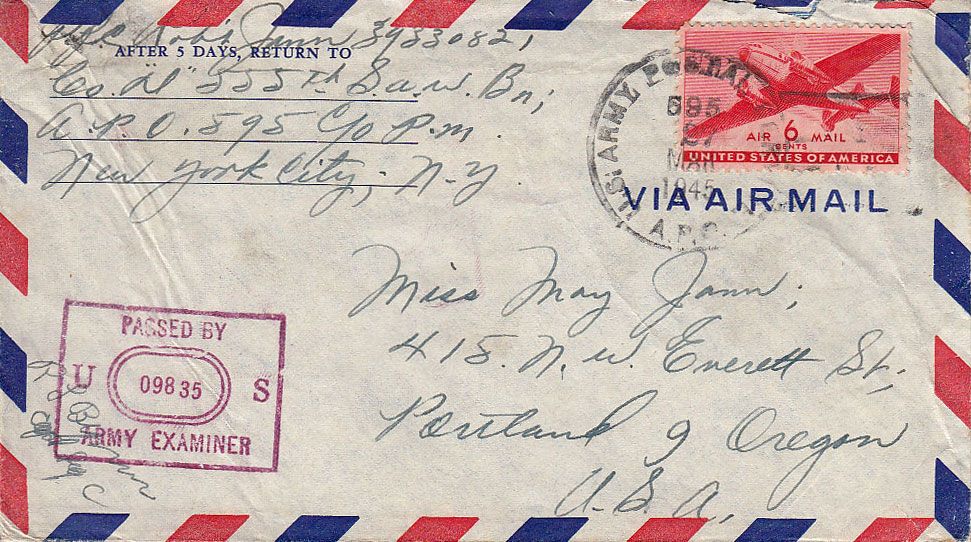 Robt Jann 39330821
AFTER 5 DAYS, RETURN TO
Co. "A" 555th S.a.w. Bn;
A.P.O. 595 c/o P.m.
New York City, N-Y.
U.S. ARMY POSTAL
595
1945
A.P.O.
AIR 6 MAIL
CENTS
UNITED STATES OF AMERICA
VIA AIR MAIL
Miss May Jann;
415 N. W. Everett St;
Portland 9 Oregon
U.S.A.
PASSED BY
U 09835 S
ARMY EXAMINER